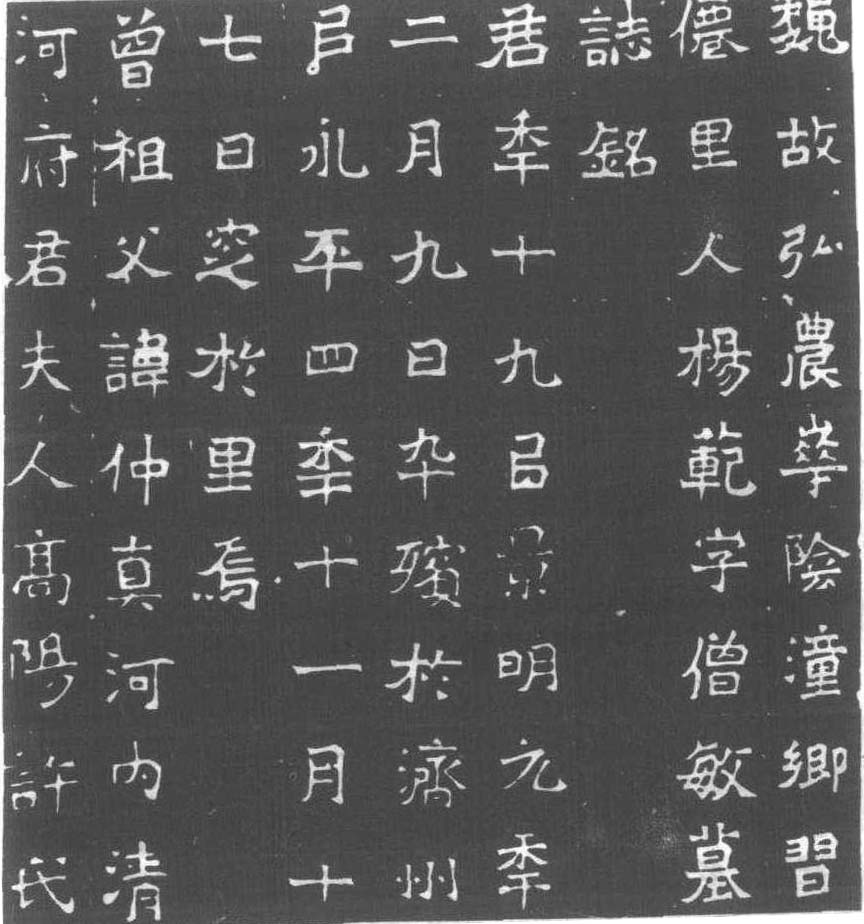 魏故弘農華陰潼鄉習
僊里人楊範字僧敏墓
誌銘
君年十九㠯景明元年
二月九日卒殯於濟州
㠯永平四年十一月十
七日窆於里焉
曾祖父諱仲真河內清
河府君夫人高陽許氏